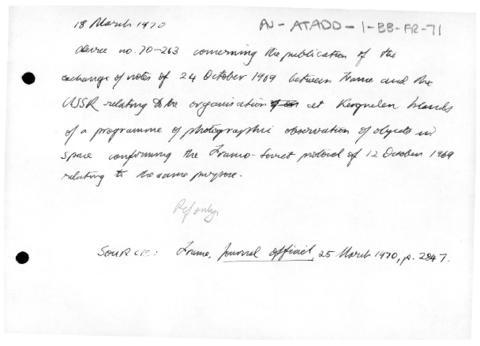 18 March 1970
AN - ATADD - 1 - BB - FR - 71
decree no. 70-263 concerning the publication of the
exchange of notes of 24 October 1969 between France and the
USSR relating to the organisation at Kerguelen Islands
of a programme of photographic observation of objects in
space confirming the Franco-Soviet protocol of 12 October 1969
relating to the same purpose.
Ref only.
SOURCE: France, Journal officiel, 25 March 1970, p. 2847.